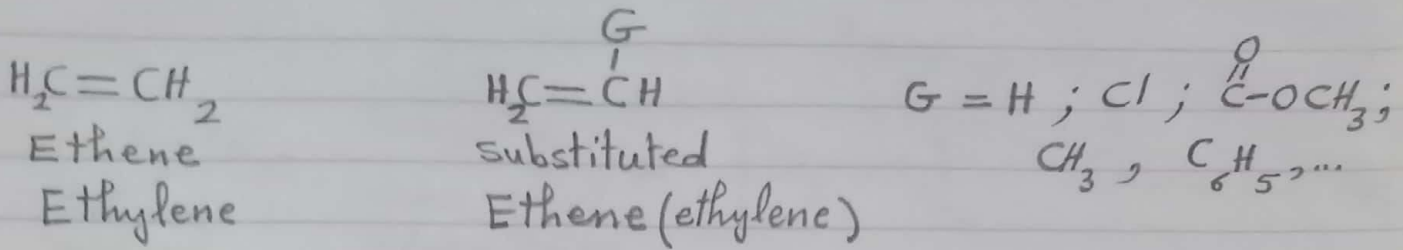 H₂C=CH₂
Ethene
Ethylene
G
H₂C=CH
substituted
Ethene (ethylene)
O
G = H ; Cl ; C-OCH₃;
CH₃ , C₆H₅,...